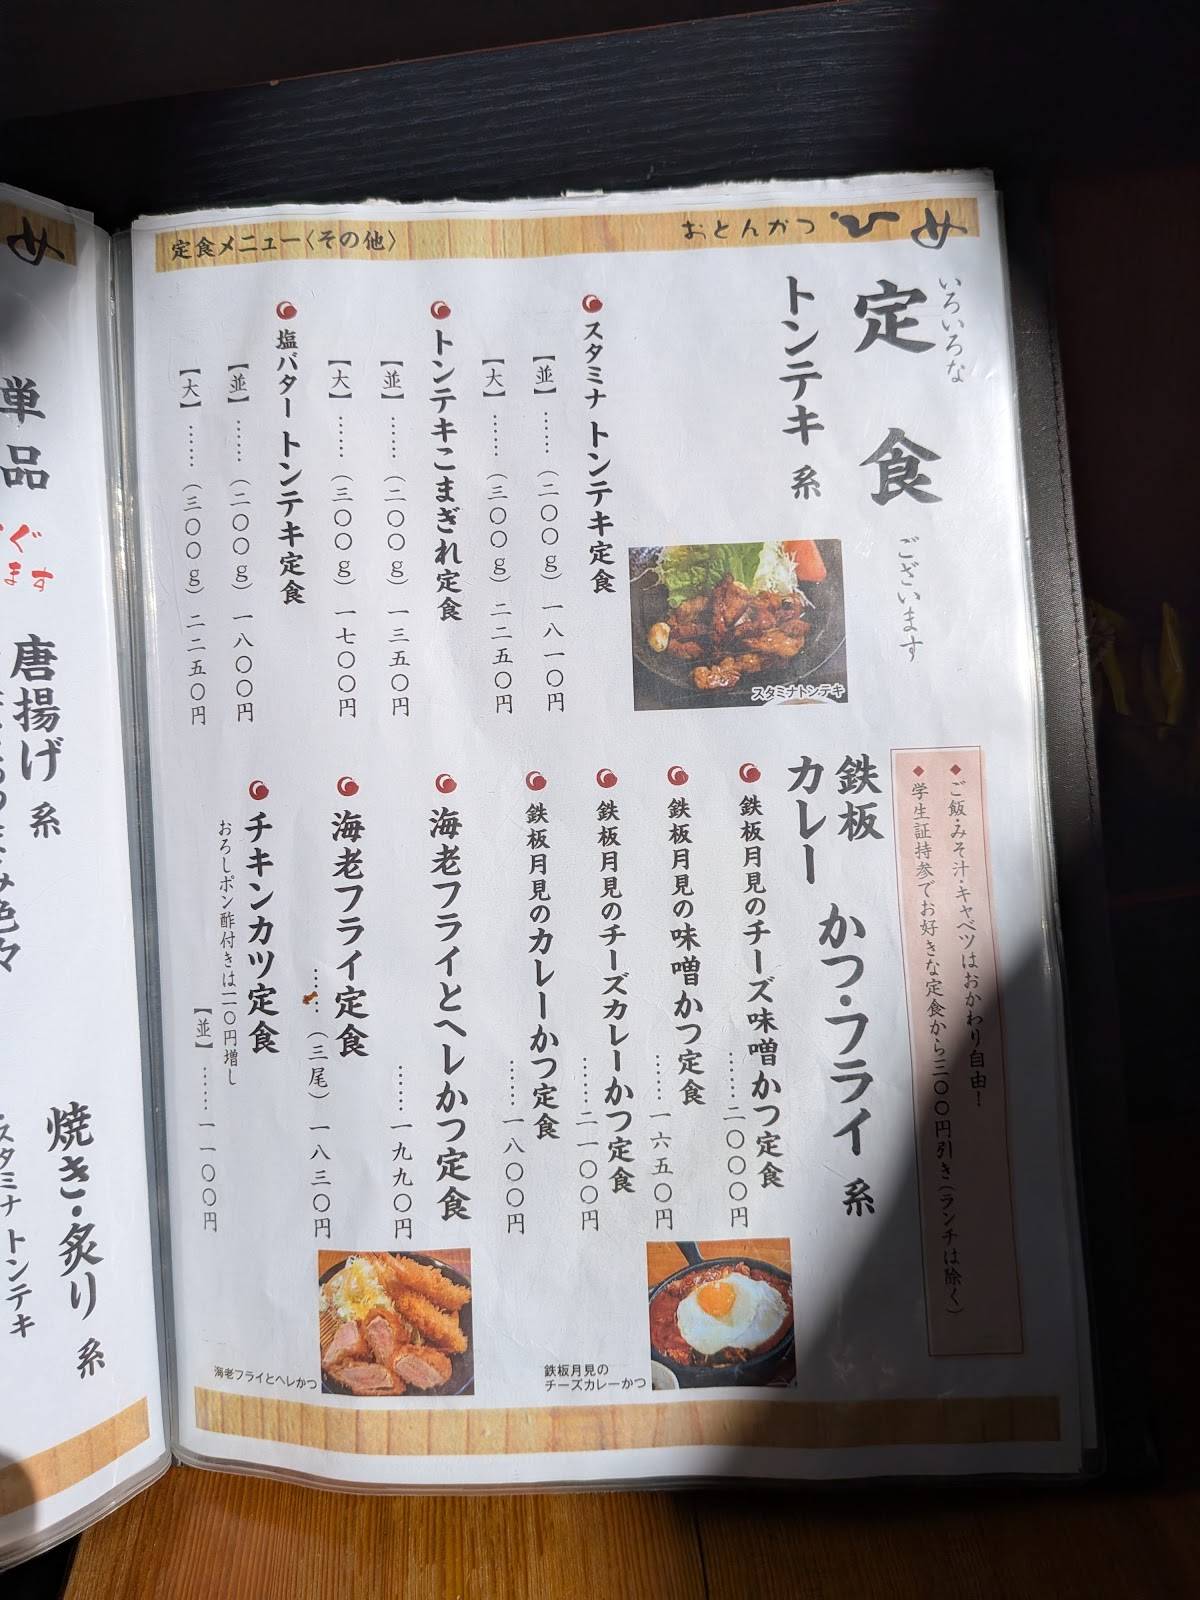 定食メニュー〈その他〉
おとんかつ ひめ
いろいろな
定食
ございます
◆ご飯・みそ汁・キャベツはおかわり自由!
◆学生証持参でお好きな定食から三〇〇円引き(ランチは除く)
トンテキ 系
スタミナトンテキ
スタミナ トンテキ定食
【並】……(二〇〇g) 一八一〇円
【大】……(三〇〇g) 二二五〇円
トンテキこまぎれ定食
【並】……(二〇〇g) 一三五〇円
【大】……(三〇〇g) 一七〇〇円
塩バター トンテキ定食
【並】……(二〇〇g) 一八〇〇円
【大】……(三〇〇g) 二二五〇円
鉄板
カレー かつ・フライ 系
鉄板月見のチーズ味噌かつ定食
……二〇〇〇円
鉄板月見の味噌かつ定食
……一六五〇円
鉄板月見のチーズカレーかつ定食
……二一〇〇円
鉄板月見のカレーかつ定食
……一八〇〇円
海老フライとヘレかつ定食
……一九九〇円
海老フライ定食
……(三尾) 一八三〇円
チキンカツ定食
おろしポン酢付きは一一〇円増し
【並】……一一〇〇円
鉄板月見の
チーズカレーかつ
海老フライとヘレかつ
め
単品
ぐ
ます
唐揚げ 系
焼き・炙り 系
スタミナ トンテキ